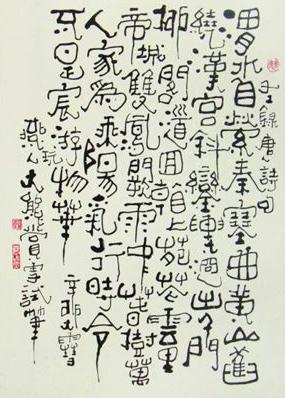 渭水自縈秦塞曲黃山舊
繞漢宮斜鑾輿迥出千門
柳閣道回看上苑花雲里
帝城雙鳳闕雨中春樹萬
人家為乘陽氣行時令
不是宸游玩物華
錄唐人詩句
辛卯大雪
燕人
試筆